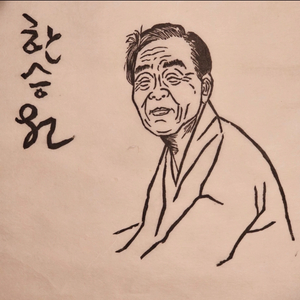 한승원